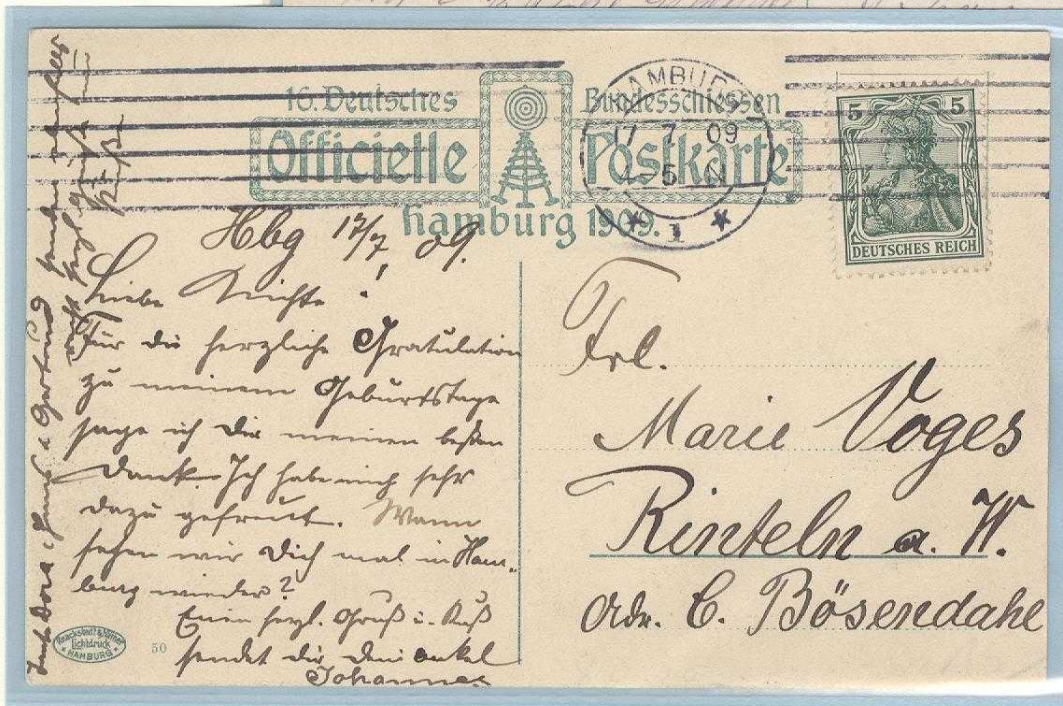 16. Deutsches Bundesschiessen
Officielle Postkarte
Hamburg 1909.
HAMBURG
17 7 09
4-5 N
* 1 *
5 5
DEUTSCHES REICH
Hbg 17/7 09.
Liebe Nichte!
Für die herzliche Gratulation
zu meinem Geburtstage
sage ich Dir meinen besten
Dank. Ich habe mich sehr
dazu gefreut. Wann
sehen wir Dich mal in Ham-
burg wieder?
Einen herzl. Gruß u. Kuß
sendet dir dein onkel
Johannes
Frl.
Marie Voges
Rinteln a. W.
Adr. C. Bösendahl
Tante Dora, Hans u Gertrud senden
Knackstedt & Näther
Lichtdruck
HAMBURG
50